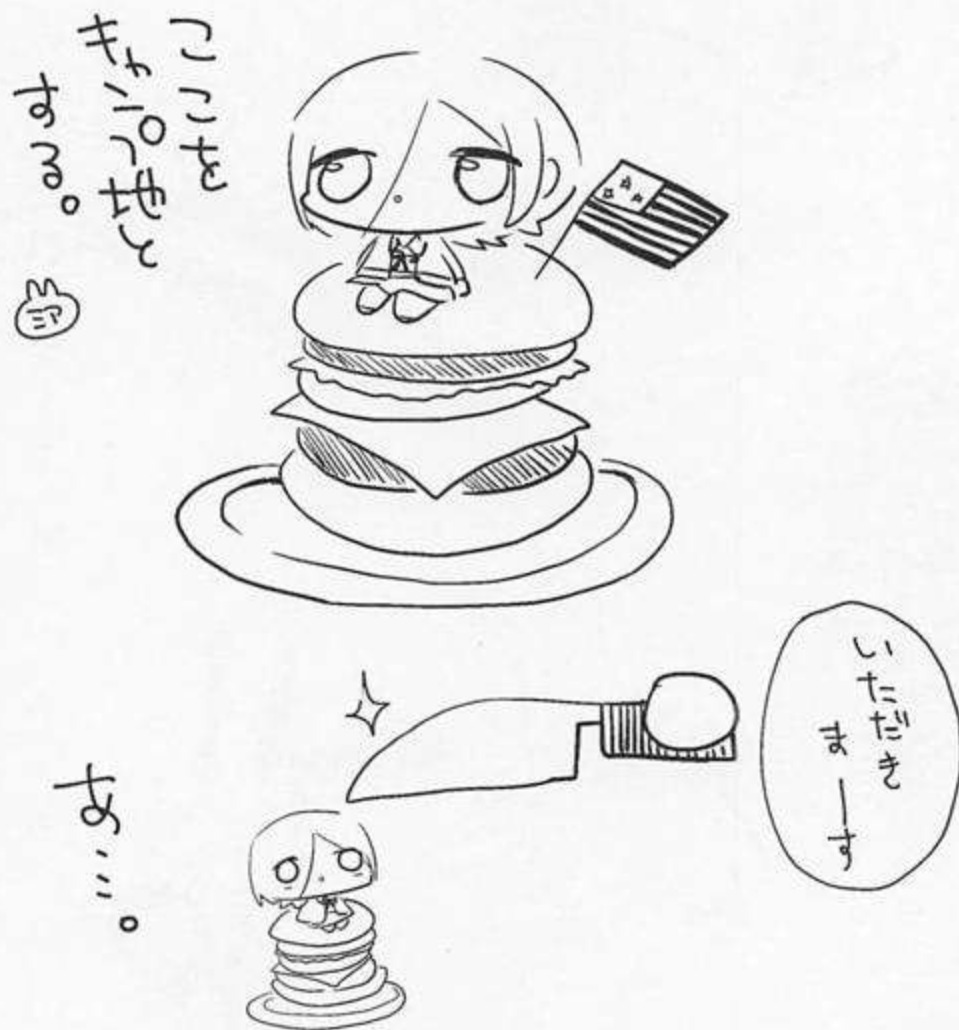 ここを
キャンプ地と
する。
ミア
いただき
まーす
あ…。